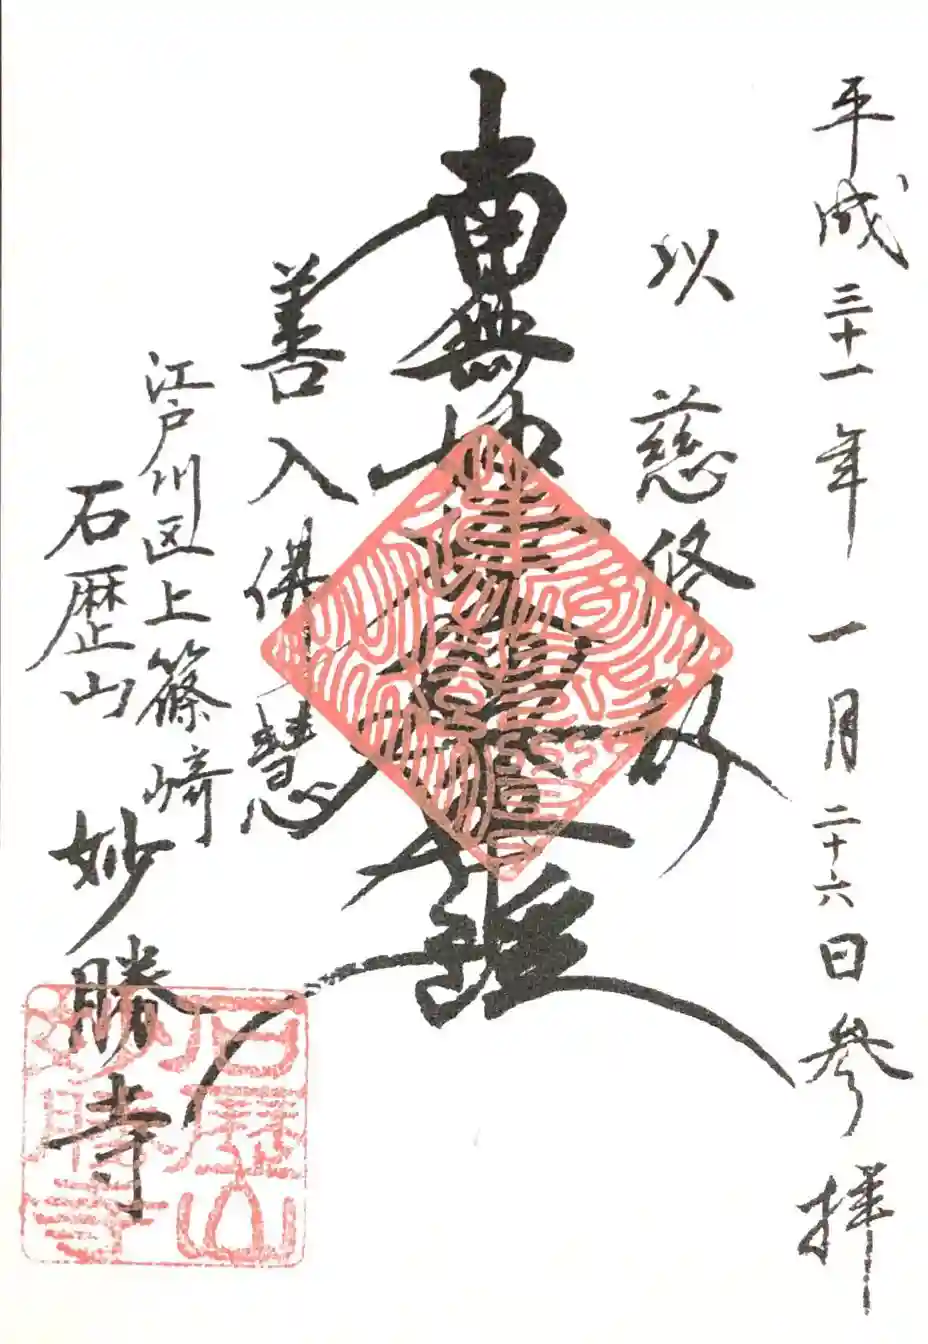 平成三十一年 一月二十六日参拝
以 慈修身
南無妙法蓮華経
善入佛慧
江戸川区上篠崎
石歴山
妙勝寺
石歴山
妙勝寺